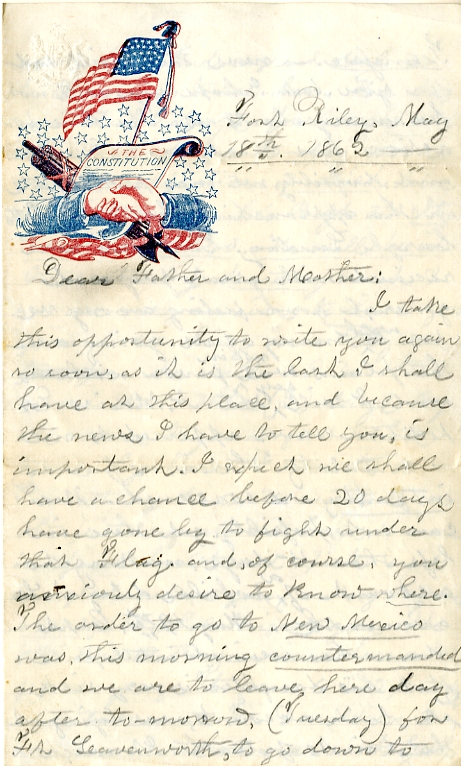 THE
CONSTITUTION
Fort Riley, May
18th. 1862
Dear Father and Mother:
I take
this opportunity to write you again
so soon, as it is the last I shall
have at this place, and because
the news I have to tell you, is
important. I expect we shall
have a chance before 20 days
have gone by to fight under
that Flag. and, of course, you
anxiously desire to know where.
The order to go to New Mexico
was, this morning countermanded
and we are to leave here day
after to-morrow, (Tuesday) for
Ft Leavenworth, to go down to